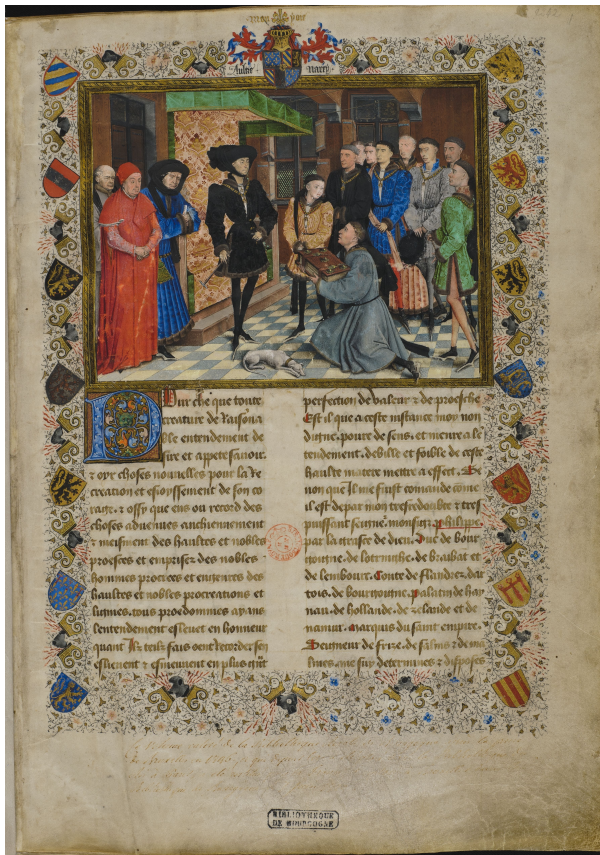 Aultre Naray
Pour che que toute
creature de Raisona
ble entendement de
sire et appete sauoir
& oyr choses nouuelles pour la Re
creation et esioyssement de son co
rage. & ossy que ens ou record des
choses aduenues anchiennement
& meisment des haultes et nobles
proesces et emprises des nobles
hommes procrees et engenres des
haultes et nobles procreations et
lignies. tous preodommes ayans
lentendement esleuet en honneur
quant Ilz telz fais oent recorder sen
eslieuent & esmeuuent en plus gnt
perfection de valeur & de proesche
Est il que a ceste instance moy non
digne, poure de sens, et menre a le
tendement, debille et foible de ceste
haulte matere mettre a effect. Se
non que il me fuist comande come
il est depar mon tresredoubte & tres
puissant seigneur. monsigneur Phelippe
par la grasse de dieu. Duc de bour
goingne. de lotringhe. de braibat et
de lembourc. Conte de flandrez. dar
tois. de bourgoingne. palatin de hay
nau. de hollande. de zelande et de
namur. Marquis du saint empire.
Seigneur de frize. de salins & de ma
lines. me suy determines & disposes
BIBLIOTHEQUE
DE BOURGOGNE